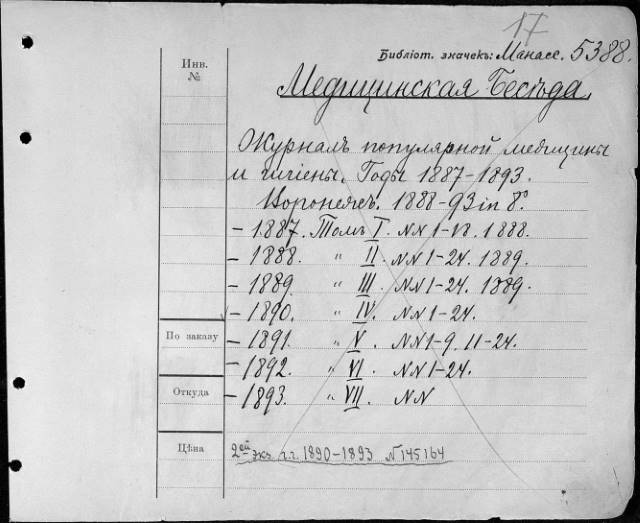 17
Библіот. значекъ: Манасс. 5388.
Инв.
№
Медицинская Бесѣда.
Журналъ популярной медицины
и гигіены. Годы 1887-1893.
Воронежъ. 1888-93 in 8°
- 1887. Томъ I. NN 1-18. 1888.
- 1888. " II. NN 1-24. 1889.
- 1889. " III. NN 1-24. 1889.
- 1890. " IV. NN 1-24.
По заказу
- 1891. " V. NN 1-9. 11-24.
- 1892. " VI. NN 1-24.
Откуда
- 1893. " VII. NN
Цѣна
2ей экз. г.г. 1890-1893 N 145164